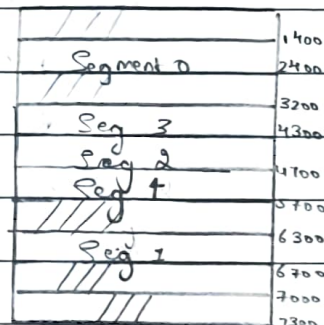 1400
Segment 0
2400
3200
Seg 3
4300
Seg 2
4700
Seg 4
5700
6300
Seg 1
6700
7000
7300